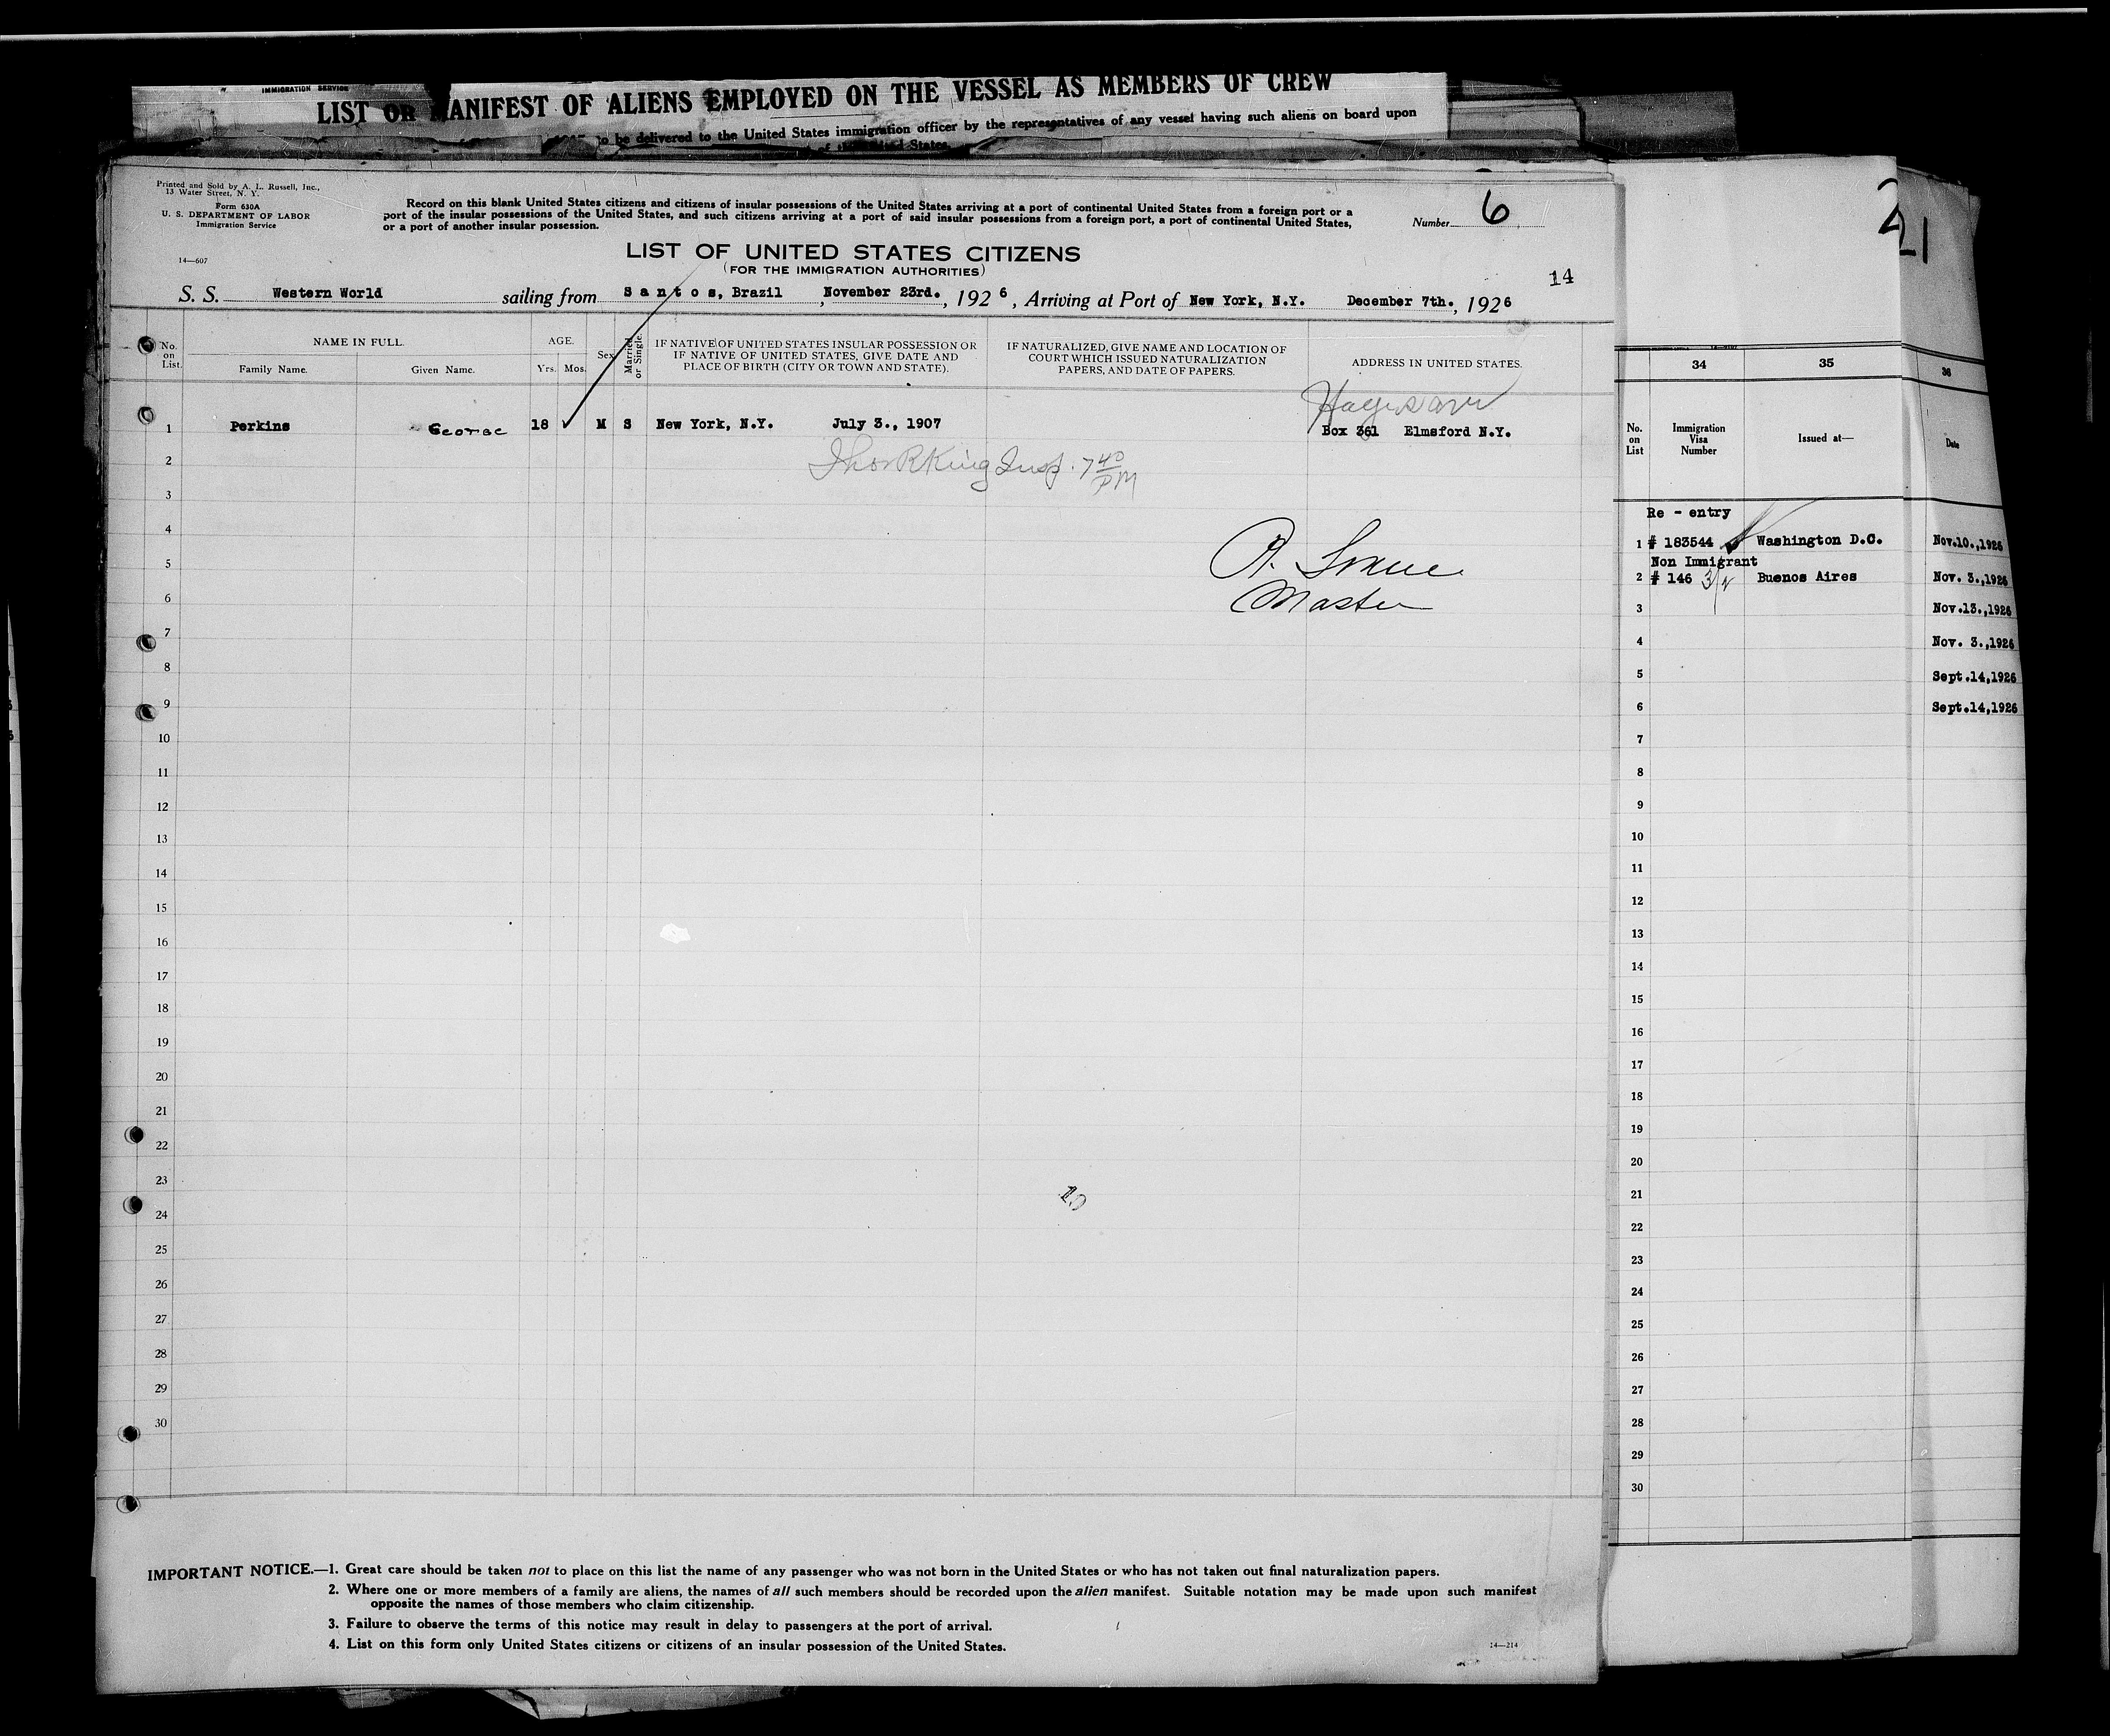 IMMIGRATION SERVICE
LIST OR MANIFEST OF ALIENS EMPLOYED ON THE VESSEL AS MEMBERS OF CREW
to be delivered to the United States immigration officer by the representatives of any vessel having such aliens on board upon
Printed and Sold by A. L. Russell, Inc.,
13 Water Street, N. Y.
Form 630A
U. S. DEPARTMENT OF LABOR
Immigration Service
14—607
Record on this blank United States citizens and citizens of insular possessions of the United States arriving at a port of continental United States from a foreign port or a
port of the insular possessions of the United States, and such citizens arriving at a port of said insular possessions from a foreign port, a port of continental United States,
or a port of another insular possession.
Number 6
LIST OF UNITED STATES CITIZENS
(FOR THE IMMIGRATION AUTHORITIES)
14
S. S. Western World sailing from Santos, Brazil, November 23rd., 1926, Arriving at Port of New York, N.Y. December 7th., 1926
No. on List.
NAME IN FULL.
Family Name.
Given Name.
AGE.
Yrs. Mos.
Sex
Married or Single.
IF NATIVE OF UNITED STATES INSULAR POSSESSION OR
IF NATIVE OF UNITED STATES, GIVE DATE AND
PLACE OF BIRTH (CITY OR TOWN AND STATE).
IF NATURALIZED, GIVE NAME AND LOCATION OF
COURT WHICH ISSUED NATURALIZATION
PAPERS, AND DATE OF PAPERS.
ADDRESS IN UNITED STATES.
1 Perkins George 18 M S New York, N.Y. July 3., 1907 Box 361 Elmsford N.Y.
2 King Insp. 7 40 PM
3
4
5
6
Master
7
8
9
10
11
12
13
14
15
16
17
18
19
20
21
22
23
24
25
26
27
28
29
30
IMPORTANT NOTICE.—1. Great care should be taken not to place on this list the name of any passenger who was not born in the United States or who has not taken out final naturalization papers.
2. Where one or more members of a family are aliens, the names of all such members should be recorded upon the alien manifest. Suitable notation may be made upon such manifest
opposite the names of those members who claim citizenship.
3. Failure to observe the terms of this notice may result in delay to passengers at the port of arrival.
4. List on this form only United States citizens or citizens of an insular possession of the United States.
14—214
34
35
No. on List
Immigration Visa Number
Issued at—
Re - entry
1 # 183544 Washington D.C.
Non Immigrant
2 # 146 Buenos Aires
3
4
5
6
7
8
9
10
11
12
13
14
15
16
17
18
19
20
21
22
23
24
25
26
27
28
29
30
21
36
Date
Nov.10.,1926
Nov. 3.,1926
Nov.13.,1926
Nov. 3.,1926
Sept.14,1926
Sept.14,1926